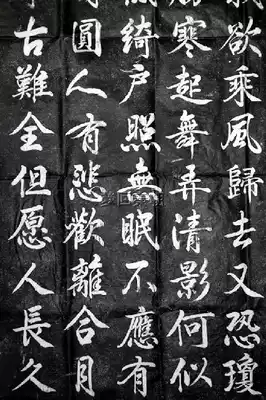 我欲乘風歸去又恐瓊
寒起舞弄清影何似
綺户照無眠不應有
圓人有悲歡離合月
古難全但愿人長久